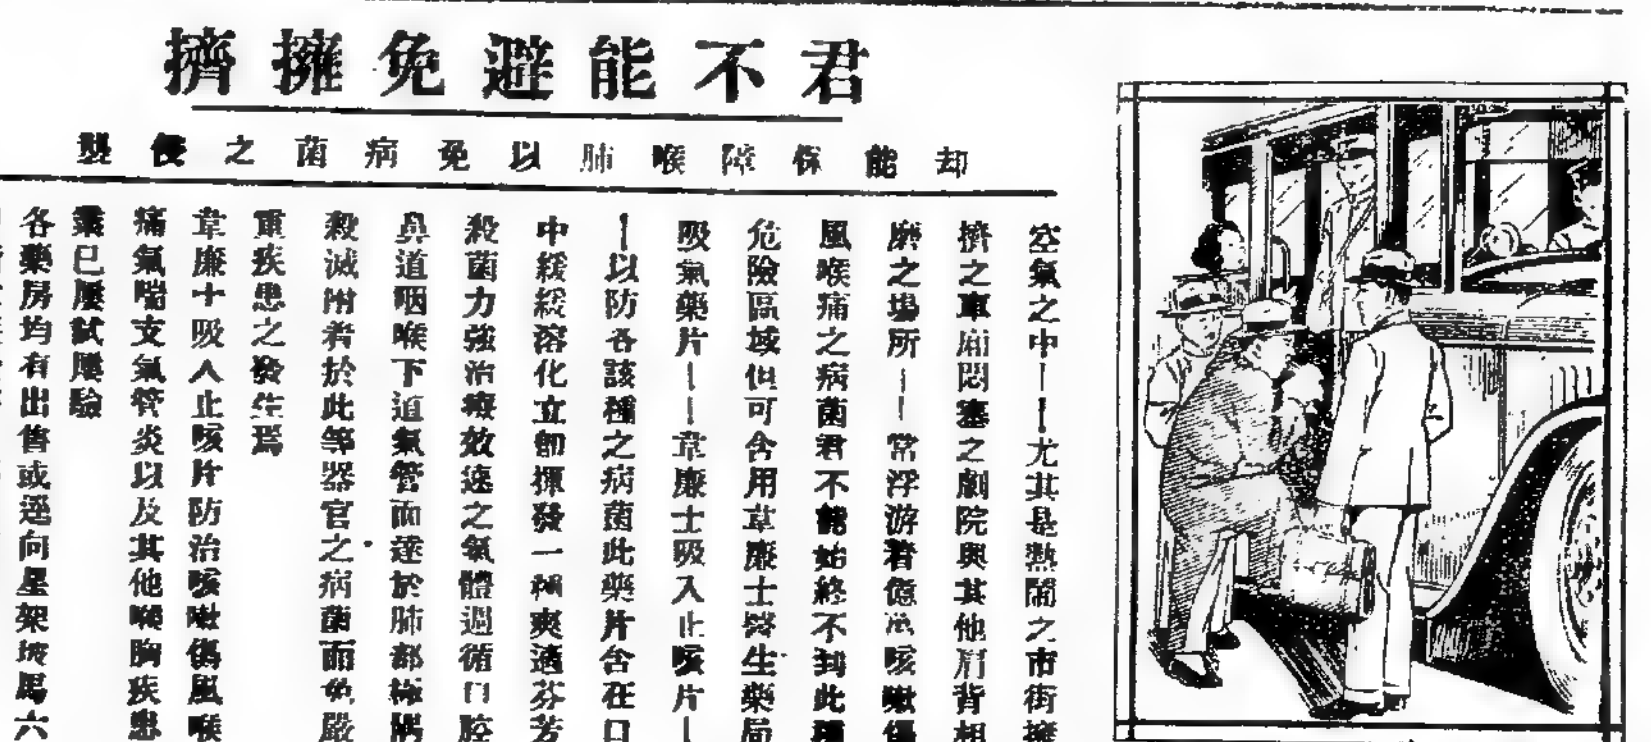 君不能避免擁擠
却能保障喉肺以免病菌之侵襲
空氣之中——尤其是熱鬧之市街擁
擠之車廂悶塞之劇院與其他肩背相
磨之場所——常浮游着億萬咳嗽傷
風喉痛之病菌君不能始終不到此種
危險區域但可含用韋廉士醫生藥局
吸氣藥片——韋廉士吸入止咳片—
—以防各該種之病菌此藥片含在口
中緩緩溶化立卽揮發一種爽適芬芳
殺菌力強治療效速之氣體週循口腔
鼻道咽喉下道氣管而達於肺部極隅
殺滅附着於此等器官之病菌而免嚴
重疾患之發生焉
韋廉士吸入止咳片防治咳嗽傷風喉
痛氣喘支氣管炎以及其他喉胸疾患
業已屢試屢驗
各藥房均有出售或逕向星架坡馬六